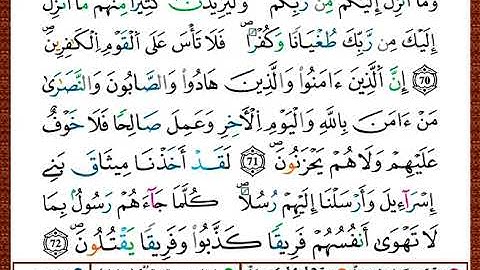 وَمَا أُنْزِلَ إِلَيْكُم مِن رَّبِّكُمْ وَلَيَزِيدَنَّ كَثِيرًا مِنْهُم مَا أُنْزِلَ
إِلَيْكَ مِن رَّبِّكَ طُغْيَانًا وَكُفْرًا ۖ فَلَا تَأْسَ عَلَى الْقَوْمِ الْكَافِرِينَ
﴿70﴾ إِنَّ الَّذِينَ ءَامَنُوا وَالَّذِينَ هَادُوا وَالصَّابُونَ وَالنَّصَارَىٰ
مَنْ ءَامَنَ بِاللَّهِ وَالْيَوْمِ الْأَخِرِ وَعَمِلَ صَالِحًا فَلَا خَوْفٌ
عَلَيْهِمْ وَلَا هُمْ يَحْزَنُونَ ﴿71﴾ لَقَدْ أَخَذْنَا مِيثَاقَ بَنِي
إِسْرَاءِيلَ وَأَرْسَلْنَا إِلَيْهِمْ رُسُلًا ۖ كُلَّمَا جَاءَهُمْ رَسُولٌ بِمَا
لَا تَهْوَىٰ أَنْفُسُهُمْ فَرِيقًا كَذَّبُوا وَفَرِيقًا يَقْتُلُونَ ﴿72﴾